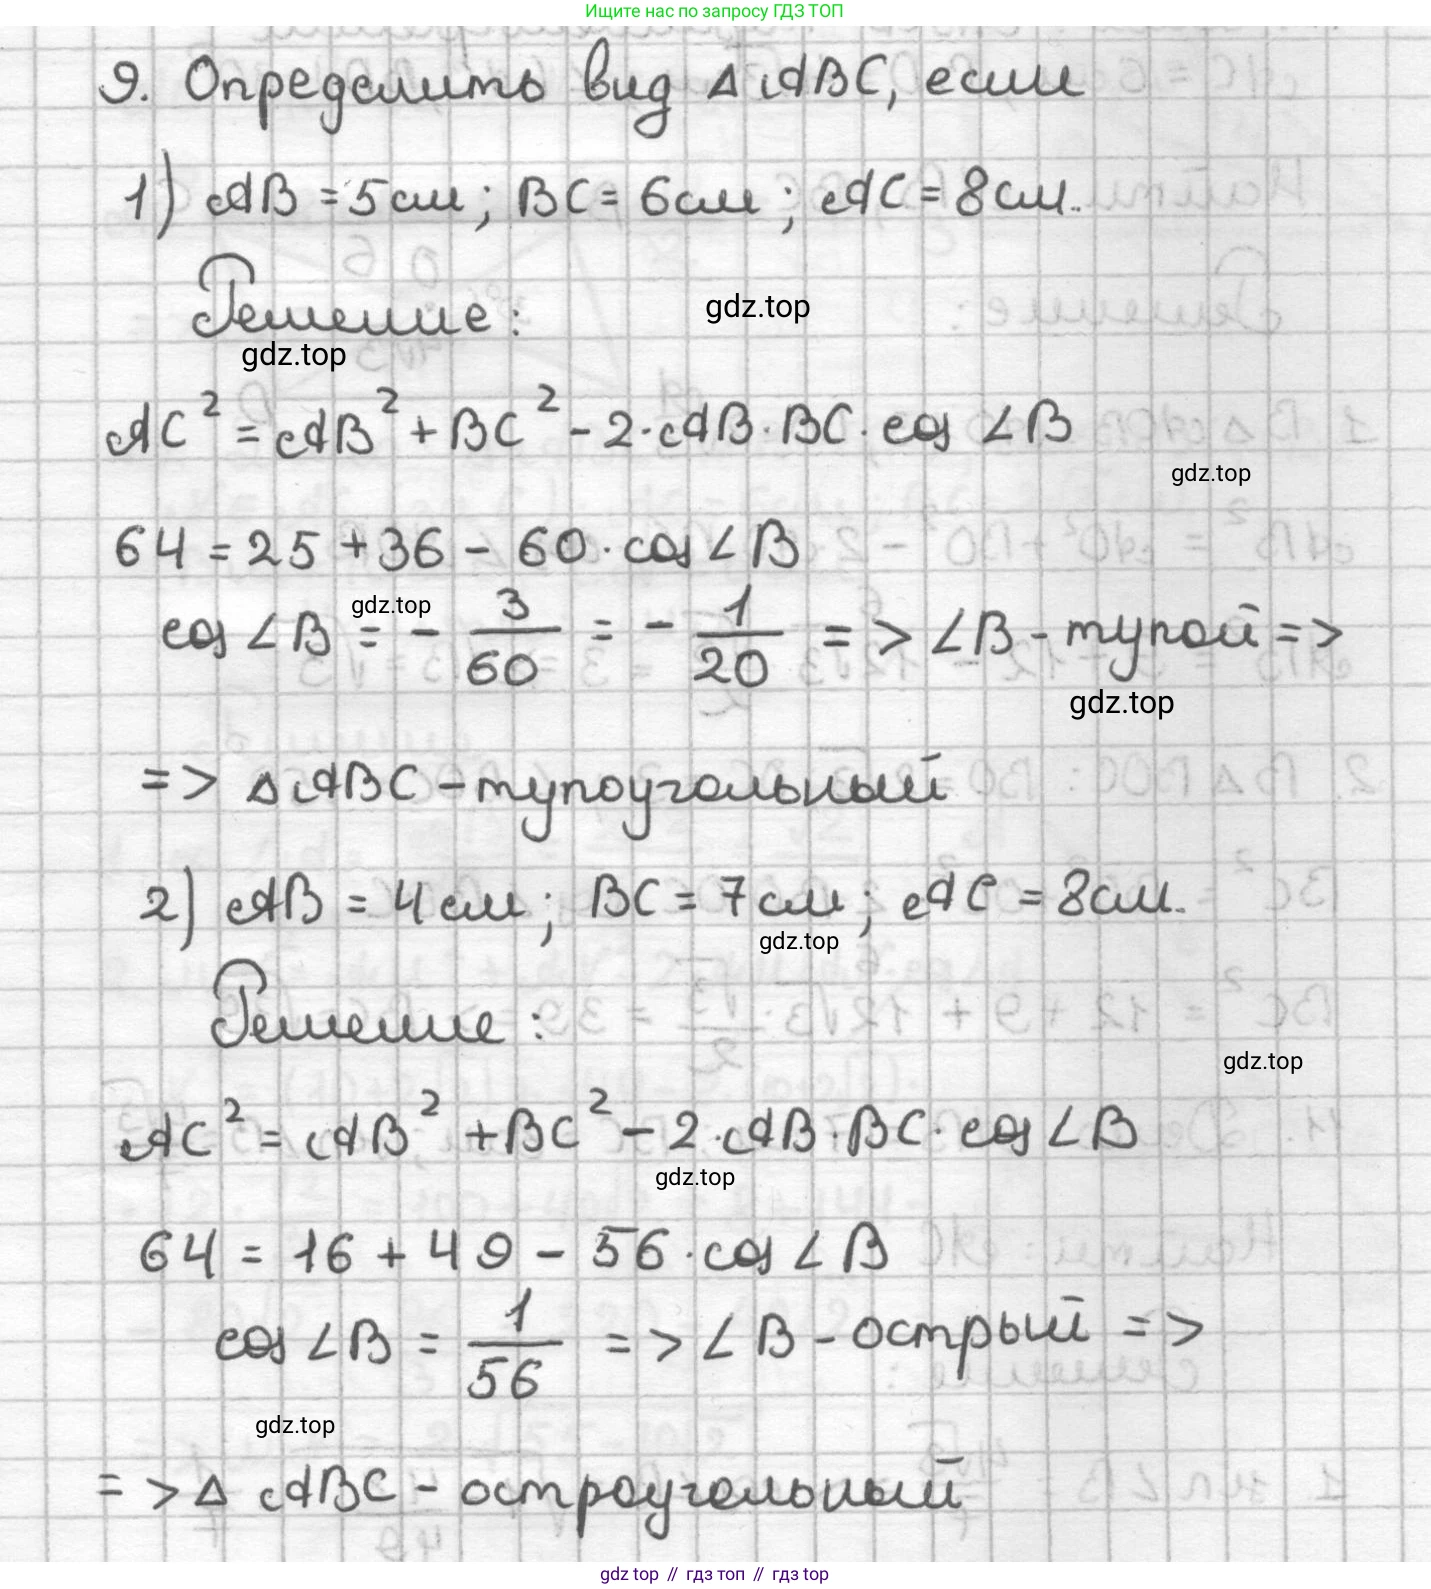 Ищите нас по запросу ГДЗ ТОП
9. Определить вид △ABC, если
1) AB = 5 см; BC = 6 см; AC = 8 см.
Решение:
gdz.top
gdz.top
AC² = AB² + BC² - 2·AB·BC·cos ∠B
gdz.top
64 = 25 + 36 - 60·cos ∠B
gdz.top
cos ∠B = - 3/60 = - 1/20 => ∠B - тупой =>
gdz.top
=> △ABC - тупоугольный
2) AB = 4 см; BC = 7 см; AC = 8 см.
gdz.top
Решение:
gdz.top
AC² = AB² + BC² - 2·AB·BC·cos ∠B
gdz.top
64 = 16 + 49 - 56·cos ∠B
cos ∠B = 1/56 => ∠B - острый =>
gdz.top
=> △ ABC - остроугольный
gdz top // гдз топ // гдз top